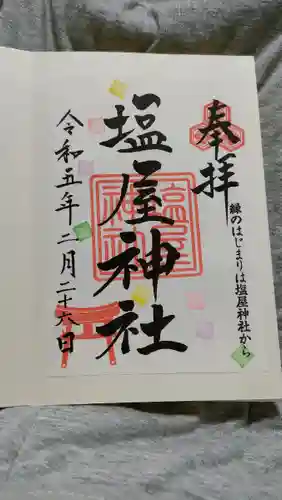 奉拝
縁のはじまりは塩屋神社から
塩屋神社
令和五年二月二十六日